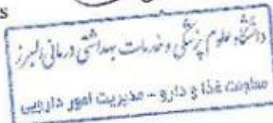 s
دانشگاه علوم پزشکی و خدمات بهداشتی درمانی البرز
معاونت غذا و دارو - مدیریت امور دارویی